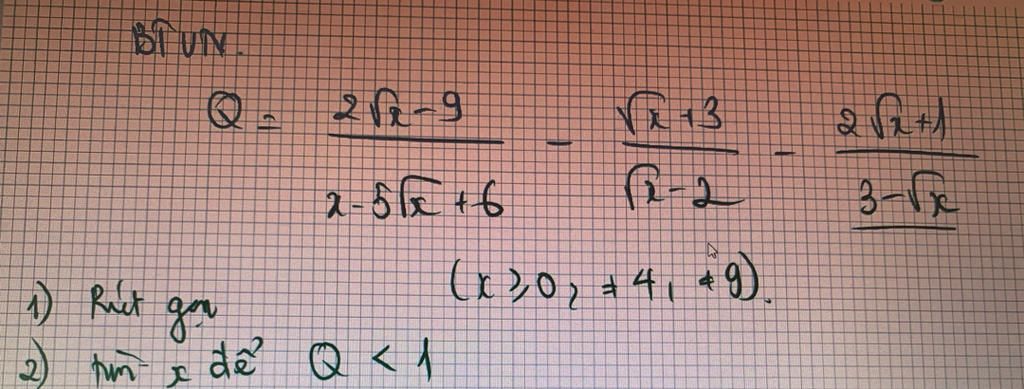 BTVN.
Q = (2√x - 9)/(x - 5√x + 6) - (√x + 3)/(√x - 2) - (2√x + 1)/(3 - √x)
(x ≥ 0, ≠ 4, ≠ 9).
1) Rút gọn
2) tìm x để Q < 1